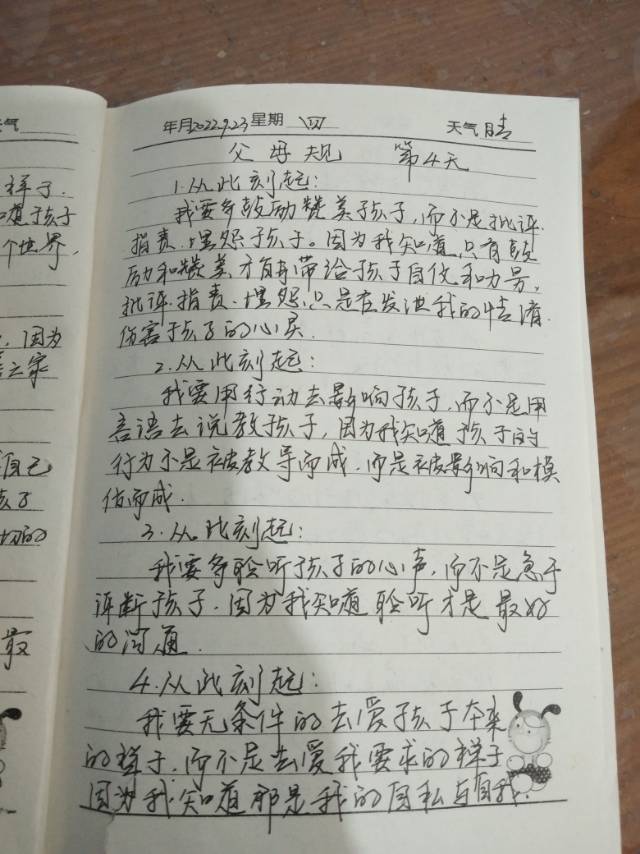 天气
样子.
孩子
个世界,
因为
之家
自己
孩子
切的
最
年月2022.9.23 星期 四 天气 晴
父母规 第4天
1.从此刻起:
我要多鼓励赞美孩子,而不是批评.
指责.埋怨孩子。因为我知道只有鼓
励和赞美,才能带给孩子自信和力量,
批评.指责.埋怨只是在发泄我的情绪.
伤害孩子的心灵.
2.从此刻起:
我要用行动去影响孩子,而不是用
言语去说教孩子,因为我知道孩子的
行为不是被教导而成.而是被影响和模
仿而成.
3.从此刻起:
我要多聆听孩子的心声,而不是急于
评断孩子.因为我知道聆听才是最好
的沟通.
4.从此刻起:
我要无条件的去爱孩子本来
的样子.而不是去爱我要求的样子
因为我知道那是我的自私与自我.